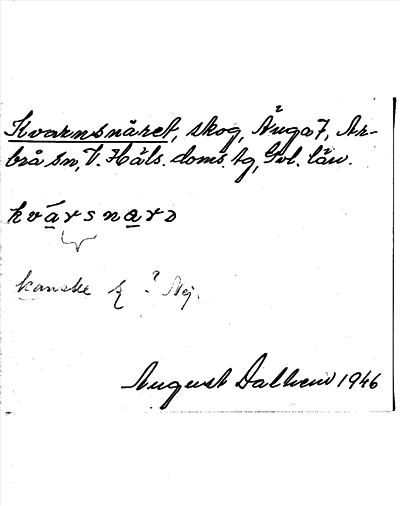 Kvarnsnåret, skog, Änga 7, Ar-
brå sn, V. Häls. doms. tg, Gvl. län.
kvársnarɔ
kanske ? Nej.
August Dalhem 1946